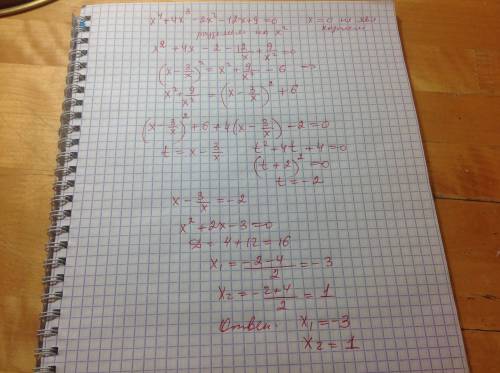 x⁴+4x³-2x²-12x+9=0 x=0 не явл
разделим на x² корнем
x²+4x-2-12/x+9/x²=0
(x-3/x)²=x²+9/x²-6 =>
x²+9/x²=(x-3/x)²+6
(x-3/x)²+6+4(x-3/x)-2=0
t=x-3/x t²+4t+4=0
(t+2)²=0
t=-2
x-3/x=-2
x²+2x-3=0
D=4+12=16
x₁=(-2-4)/2=-3
x₂=(-2+4)/2=1
Ответ: x₁=-3
x₂=1